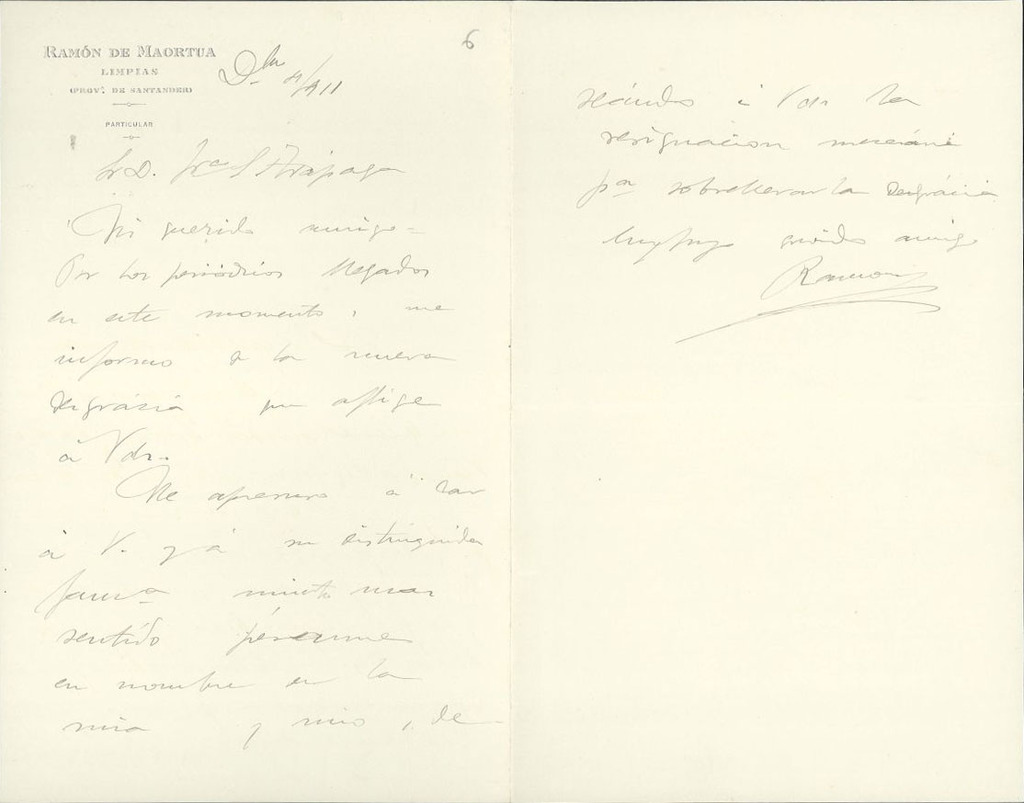 6
RAMÓN DE MAORTUA
LIMPIAS
(PROV.ª DE SANTANDER)
PARTICULAR
Sr D.
Mi querido amigo =
Por los periódicos llegados
en este momento, me
informo de la nueva
desgrácia que aflige
á Vds.
Me apresuro á dar
á V. y á su distinguida
fama nuestro mas
sentido pésame
en nombre de la
mia y mio, de
seándo á Vds la
resignacion necesária
pa sobrellevar la desgrácia
amigo
Ramon